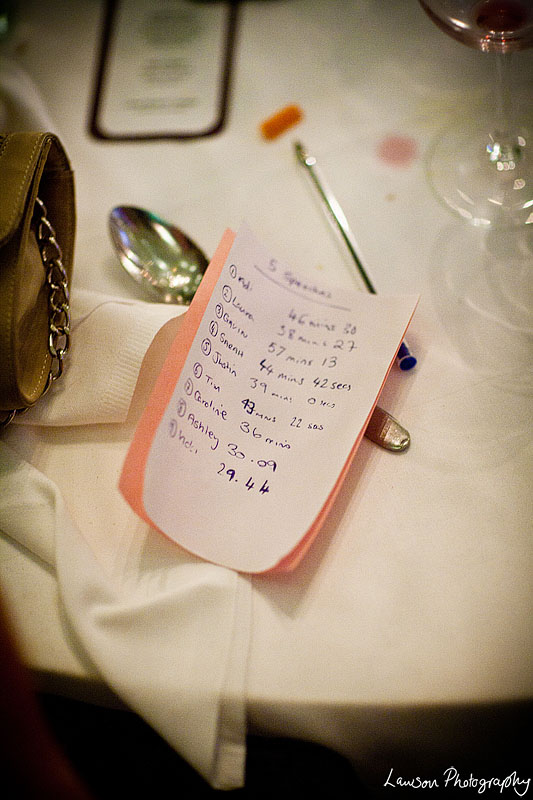 5 Speeches
① Indi 46 mins 30
② Laura 38 mins 27
③ GAVIN 57 mins 13
④ SARAH 44 mins 42 secs
⑤ Justin 39 mins 0 secs
⑥ Tim 43 mins 22 secs
⑦ Caroline 36 mins
⑧ Ashley 30.09
⑨ 29.44
Lawson Photography